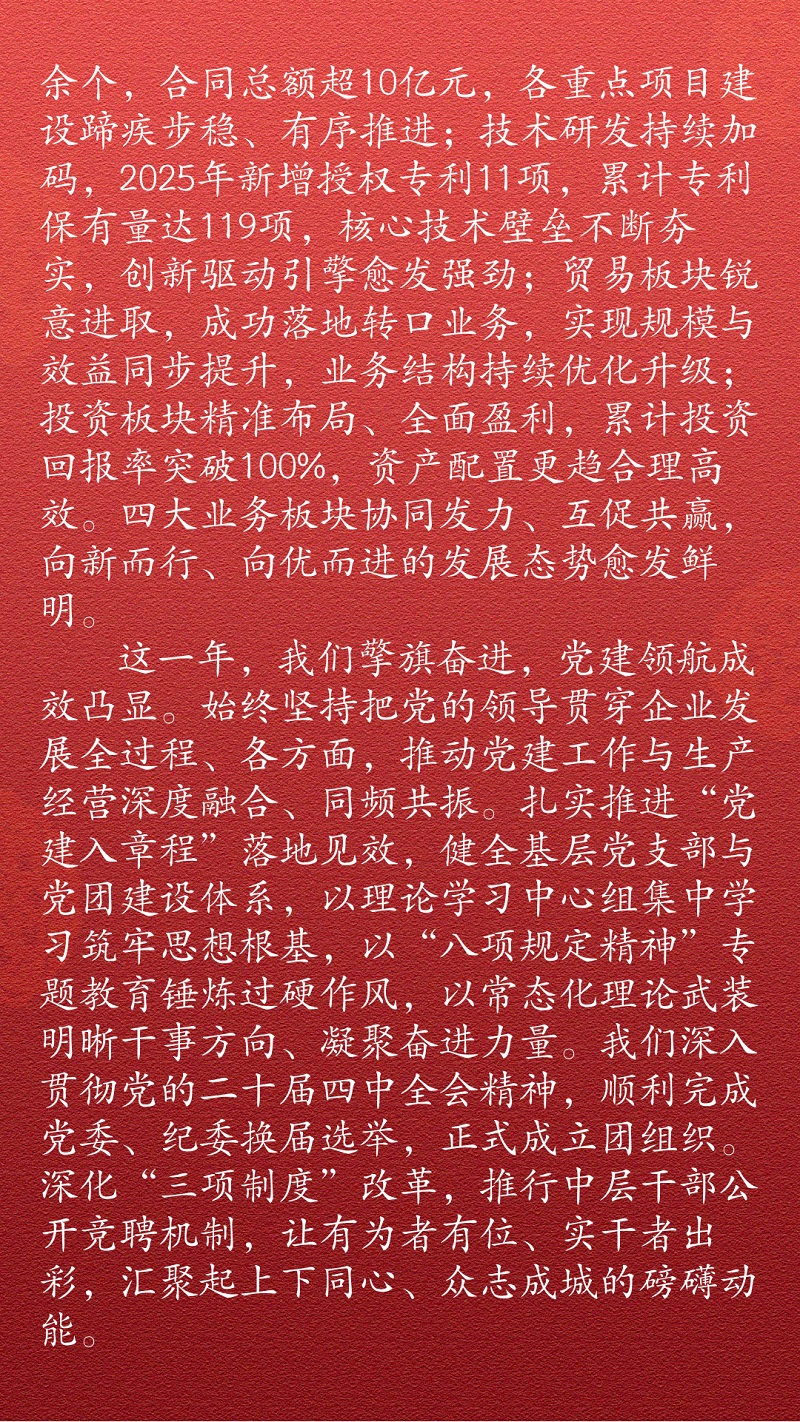 余个，合同总额超10亿元，各重点项目建
设蹄疾步稳、有序推进；技术研发持续加
码，2025年新增授权专利11项，累计专利
保有量达119项，核心技术壁垒不断夯
实，创新驱动引擎愈发强劲；贸易板块锐
意进取，成功落地转口业务，实现规模与
效益同步提升，业务结构持续优化升级；
投资板块精准布局、全面盈利，累计投资
回报率突破100%，资产配置更趋合理高
效。四大业务板块协同发力、互促共赢，
向新而行、向优而进的发展态势愈发鲜
明。
这一年，我们擎旗奋进，党建领航成
效凸显。始终坚持把党的领导贯穿企业发
展全过程、各方面，推动党建工作与生产
经营深度融合、同频共振。扎实推进“党
建入章程”落地见效，健全基层党支部与
党团建设体系，以理论学习中心组集中学
习筑牢思想根基，以“八项规定精神”专
题教育锤炼过硬作风，以常态化理论武装
明晰干事方向、凝聚奋进力量。我们深入
贯彻党的二十届四中全会精神，顺利完成
党委、纪委换届选举，正式成立团组织。
深化“三项制度”改革，推行中层干部公
开竞聘机制，让有为者有位、实干者出
彩，汇聚起上下同心、众志成城的磅礴动
能。